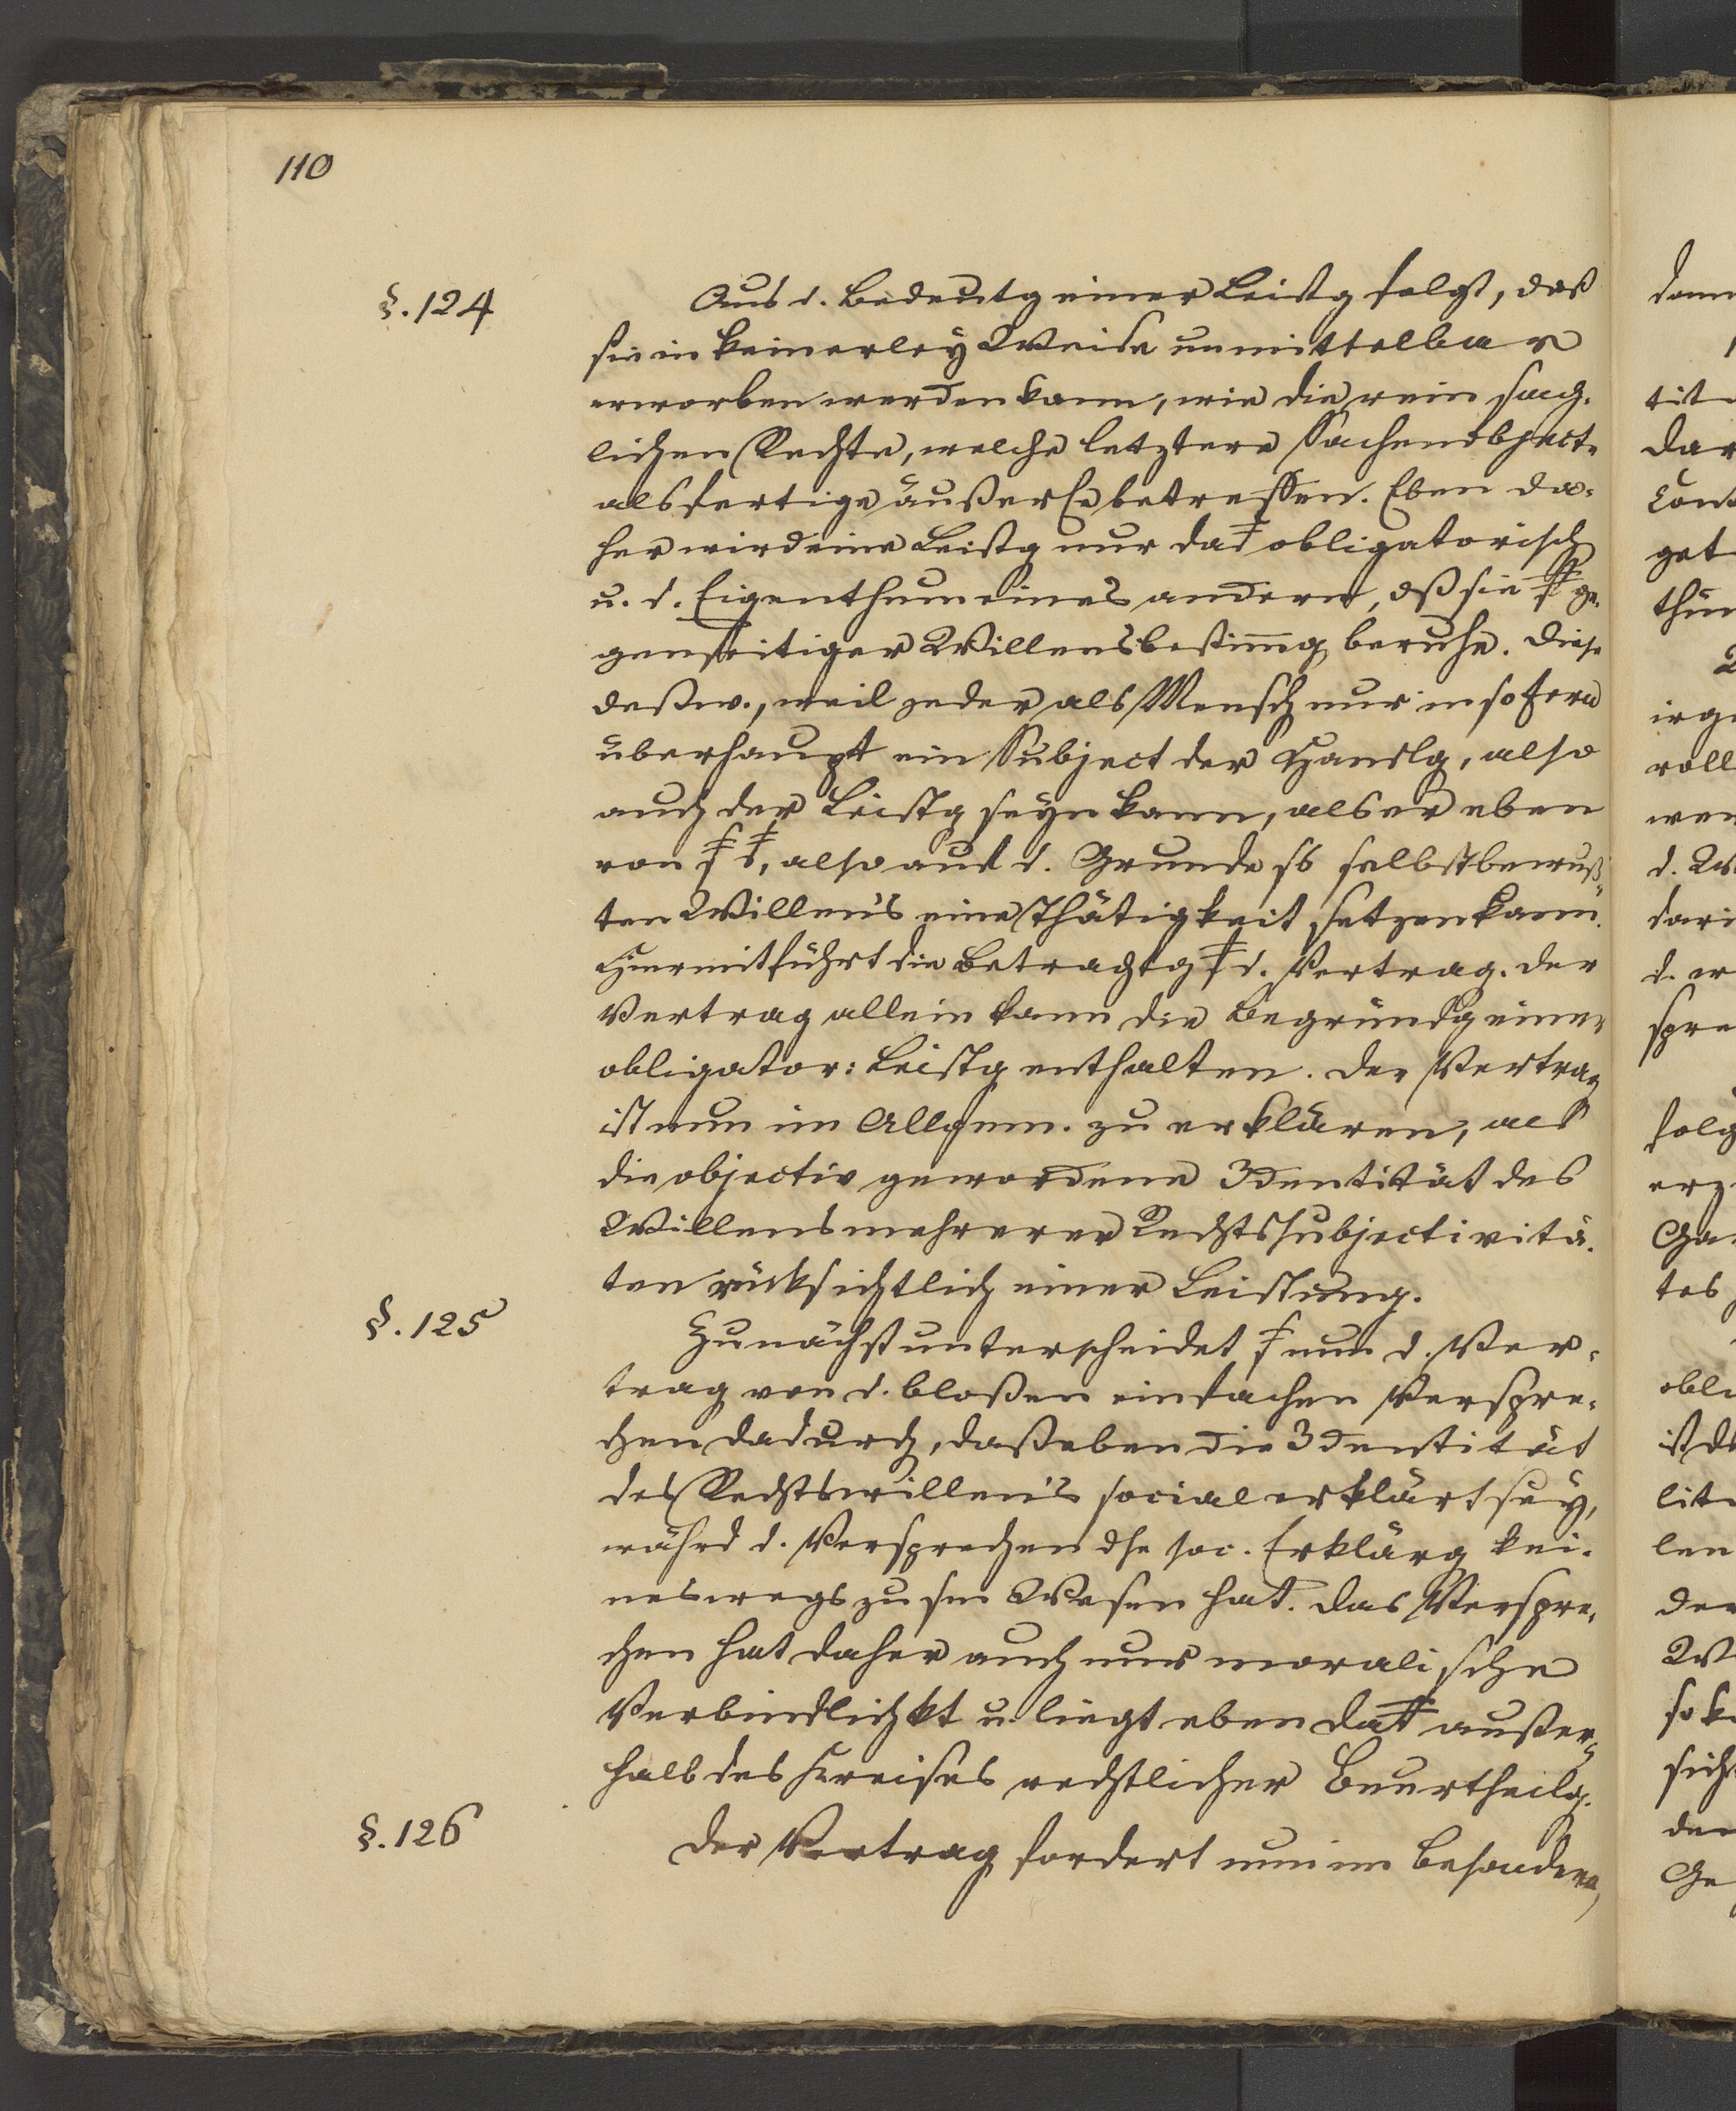 110
§. 124
Aus d. Bedeutg einer Leistg folgt, daß
sie in keinerley Weise unmittelbar
erworben werden kann, wie die rein sach-
lichen Rechte, welche letztere Sachenobject.
als fertige äußere betreffen. Eben da-
her wird eine Leistg nur obligatorisch
u. d. Eigenthum eines andern, dß sie ge-
genseitiger Willensbestimg beruhe. Diese
deßw., weil jeder als Mensch nur in sofern
überhaupt ein Subject der Handlg, also
auch der Leistg seyn kann, als er eben
von also aus d. Grunde ss selbstbewuß-
ten Willens eine Thätigkeit setzen kann.
Hiermit führt die Betrachtg d. Vertrag. Der
Vertrag allein kann die Begründg einer
obligator: Leistg enthalten. Der Vertrag
ist nun im Allgem. zu erklären, als
die objectiv gewordene Identität des
Willens mehrerer Rechtssubjectivitä-
ten rücksichtlich einer Leistung.
§. 125
Zunächst unterscheidet nun d. Ver-
trag von d. bloßen einfachen Verspre-
chen dadurch, daß eben die Identität
des Rechtswillens social erklärt sey,
währd d. Versprechen dse soc. Erklärg kei-
neswegs zu sm Wesen hat. Das Verspre-
chen hat daher auch nur moralische
Verbindlichkt u. liegt eben außer-
halb des Kreises rechtlicher Beurtheilg.
§. 126
Der Vertrag fordert nun im Besondern,